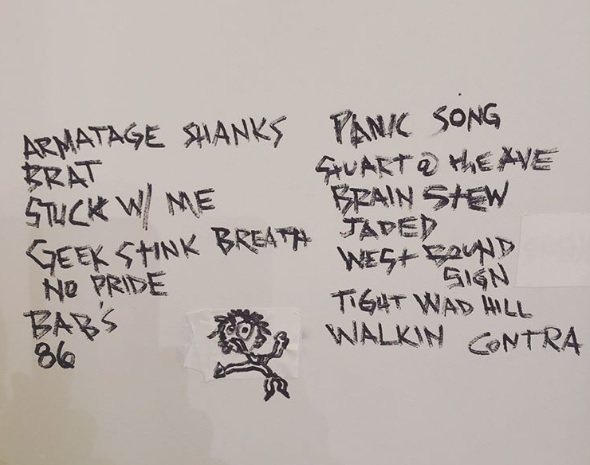 ARMATAGE SHANKS
BRAT
STUCK W/ ME
GEEK STINK BREATH
NO PRIDE
BAB'S
86
PANIC SONG
STUART @ THE AVE
BRAIN STEW
JADED
WEST BOUND
SIGN
TIGHT WAD HILL
WALKIN CONTRA